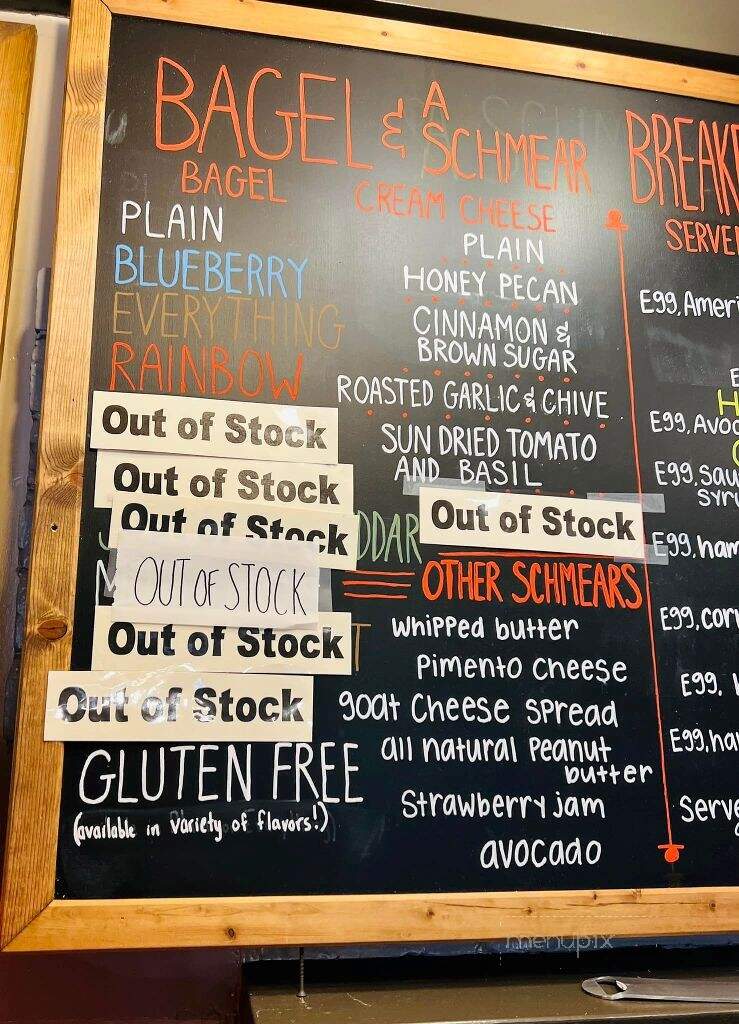 BAGEL & A SCHMEAR
BAGEL
PLAIN
BLUEBERRY
EVERYTHING
RAINBOW
Out of Stock
Out of Stock
Out of Stock
OUT OF STOCK
Out of Stock
Out of Stock
GLUTEN FREE
(available in variety of flavors!)
CREAM CHEESE
PLAIN
HONEY PECAN
CINNAMON &
BROWN SUGAR
ROASTED GARLIC & CHIVE
SUN DRIED TOMATO
AND BASIL
Out of Stock
DDAR
OTHER SCHMEARS
Whipped butter
Pimento Cheese
goat Cheese Spread
all natural Peanut
butter
Strawberry jam
avocado
BREAK
SERVE
Egg, Ameri
E
H
Egg, Avoc
Egg, sau
syru
Egg, ham
Egg, cor
Egg,
Egg, ha
Serve
menupix